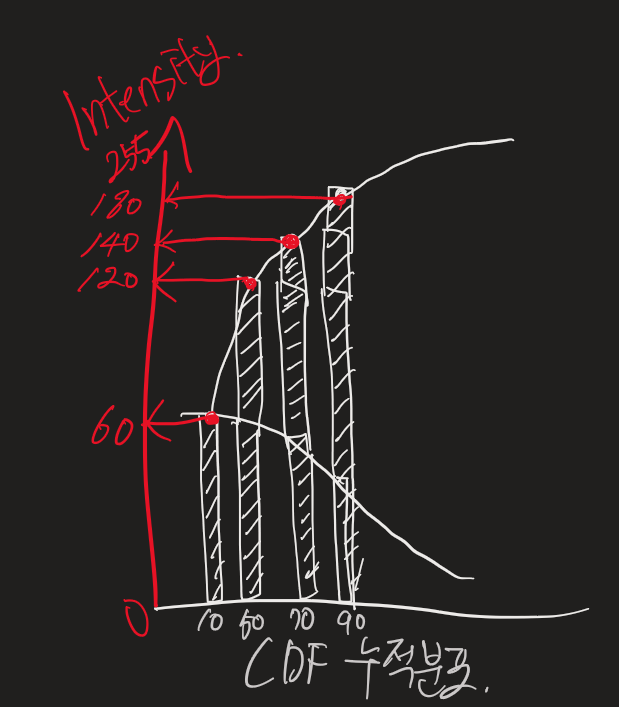 Intensity.
255
180
140
120
60
0
10 50 70 90
CDF 누적분포.